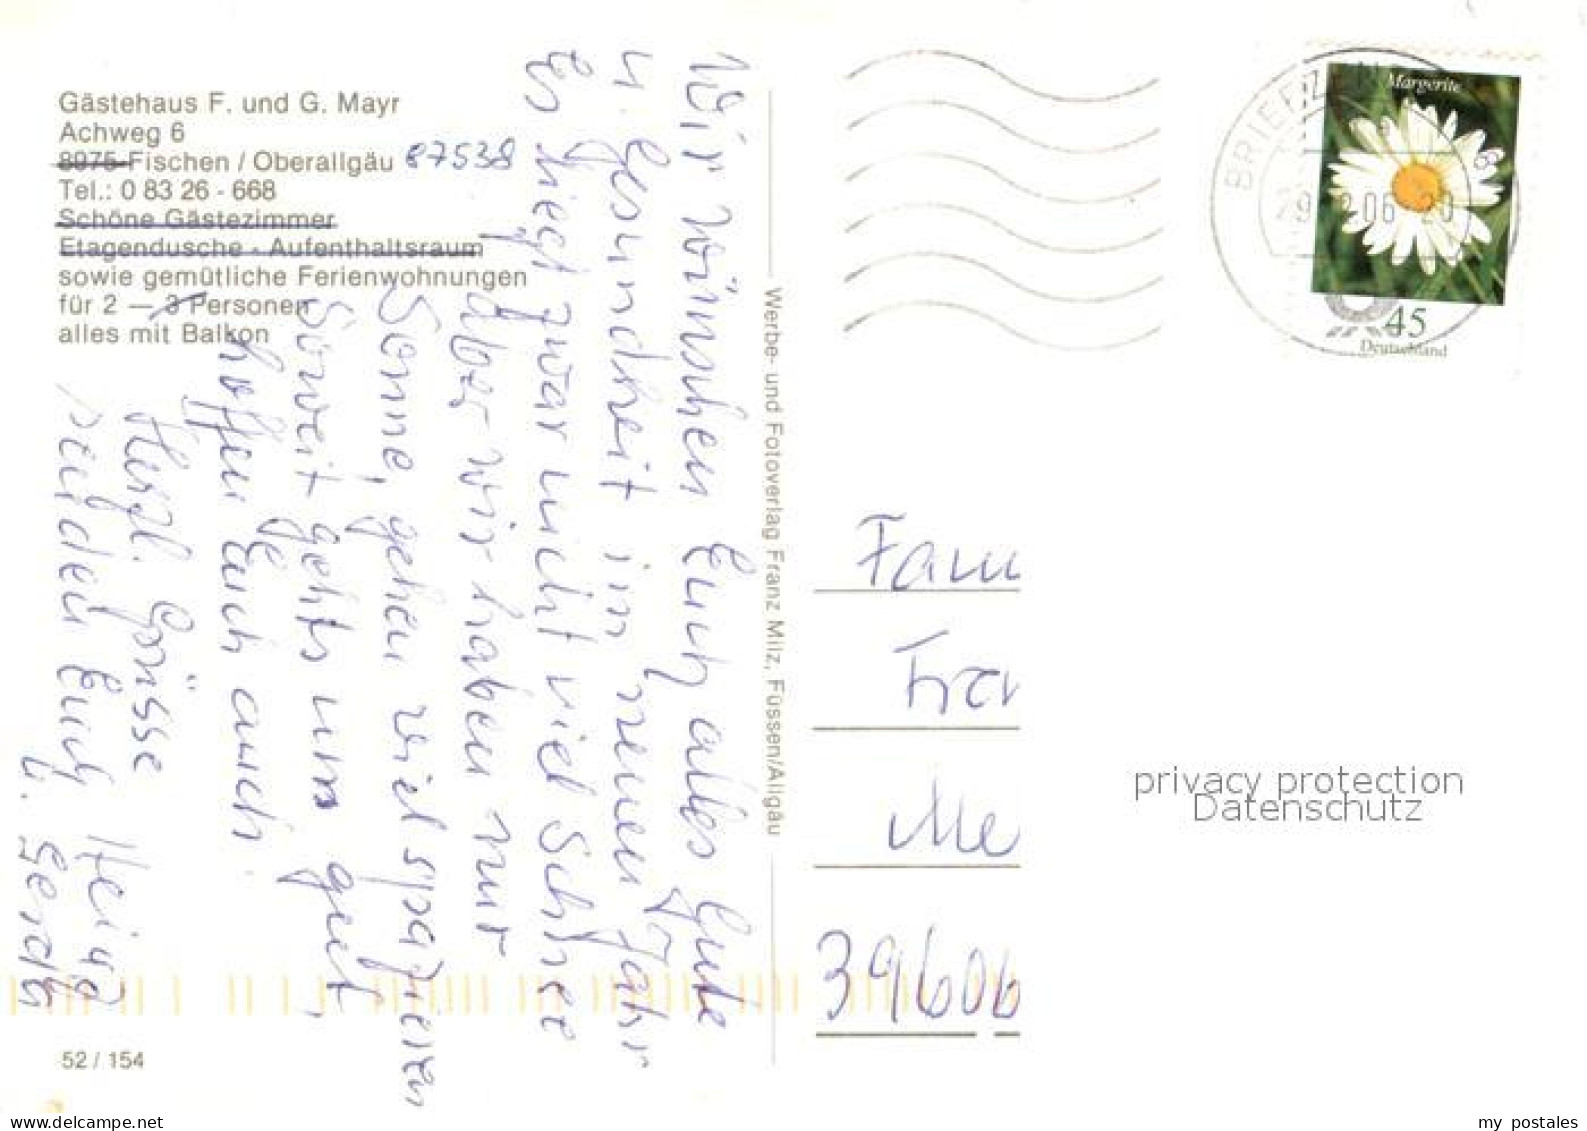 Gästehaus F. und G. Mayr
Achweg 6
8975 Fischen / Oberallgäu 87538
Tel.: 0 83 26 - 668
Schöne Gästezimmer
Etagendusche - Aufenthaltsraum
sowie gemütliche Ferienwohnungen
für 2 — 3 Personen
alles mit Balkon
Wir wünschen Euch alles Gute
u. Gesundheit im neuen Jahr
Es liegt zwar nicht viel Schnee
aber wir haben nur
Sonne, gehen viel spazieren
Soweit gehts uns gut,
hoffen Euch auch.
Herzl. Grüsse
senden Euch Heinz
u. Gerda
52 / 154
Werbe- und Fotoverlag Franz Milz, Füssen/Allgäu
Margerite
BRIEFZ
45
Deutschland
Fam
Fra
Me
39606
privacy protection
Datenschutz
delcampe.net
my postales